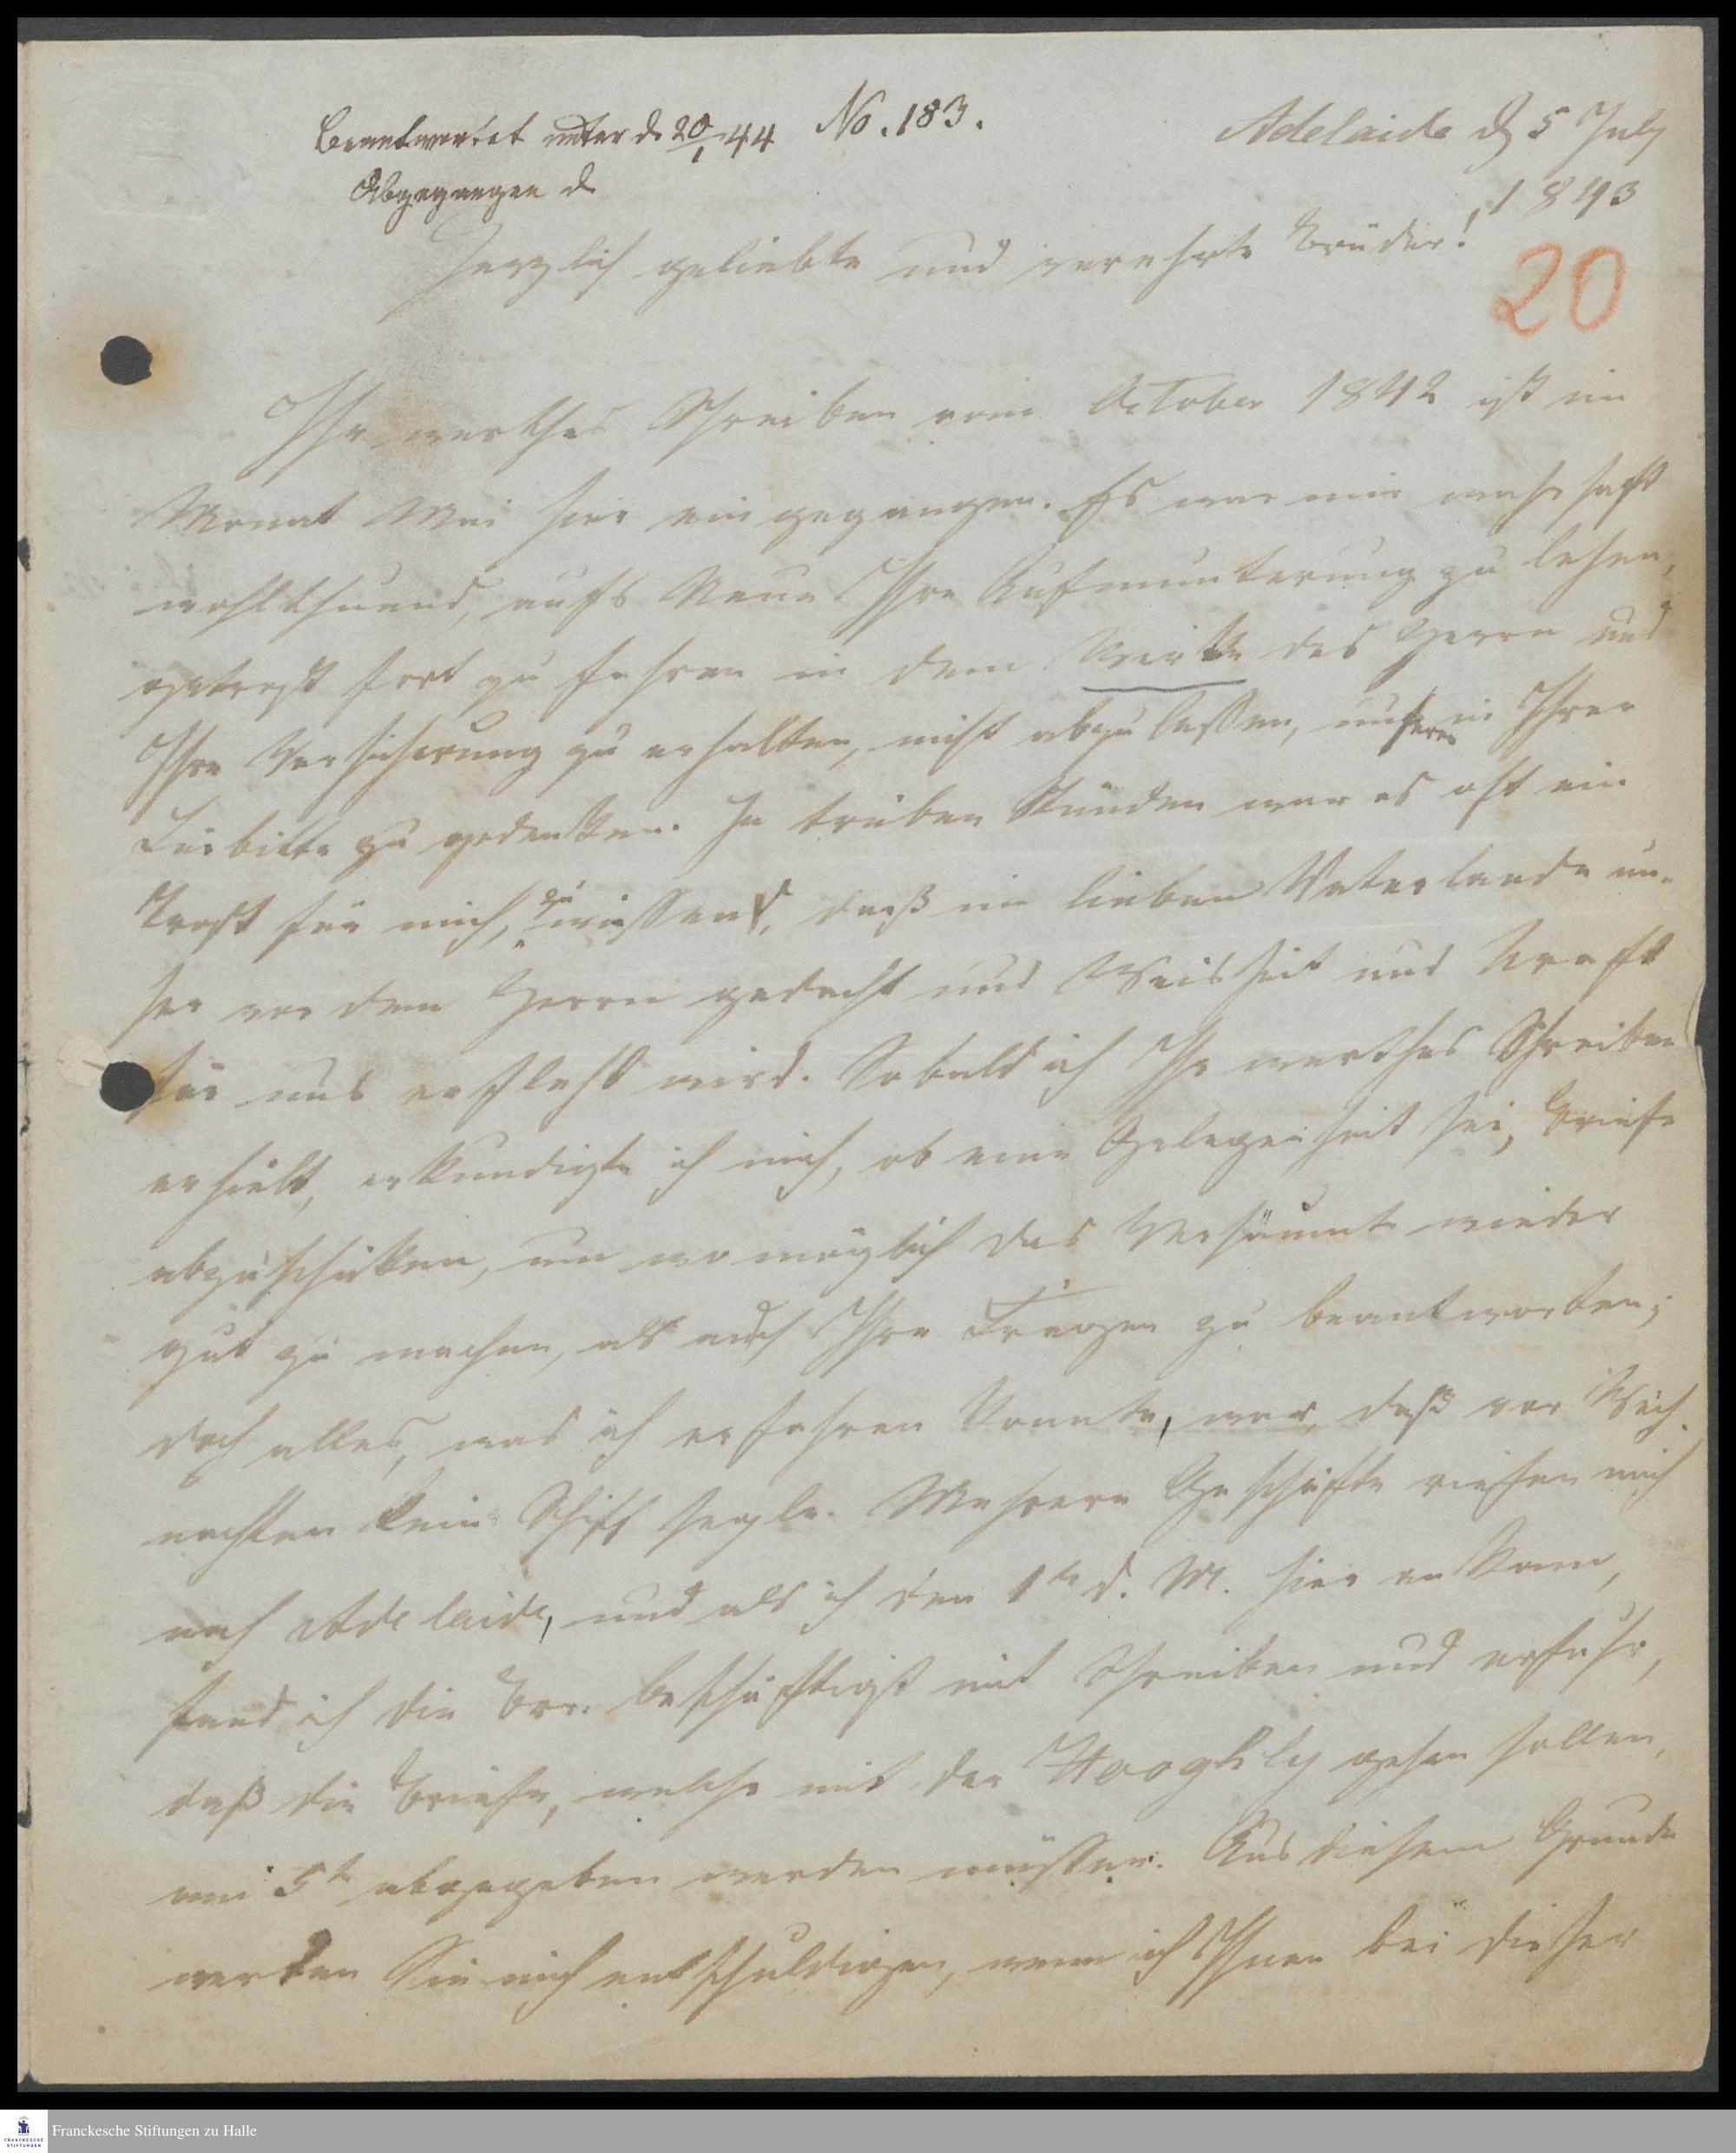 Beantwortet unter d. 20/1 44 No. 183.
Abgegangen d
Adelaide d 5 July
1843
20
Herzlich geliebte und verehrte Brüder!
Ihr werthes Schreiben vom October 1842 ist im
Monat Mai hier eingegangen. Es war mir wahrhaft
wohlthuend, aufs Neue Ihre Aufmunterung zu lesen,
getrost fort zu fahren in dem Werke des Herrn und
Ihre Versicherung zu erhalten, nicht abzulassen, unserer in Ihrer
Fürbitte zu gedenken. In trüben Stunden war es oft ein
Trost für mich, zu wissen, daß im lieben Vaterlande un-
ser vor dem Herrn gedacht und Weisheit und Kraft
für uns erfleht wird. Sobald ich Ihr werthes Schreiben
erhielt, erkundigte ich mich, ob eine Gelegenheit sei, Briefe
abzuschicken, um wo möglich das Versäumte wieder
gut zu machen, als auch Ihre Fragen zu beantworten;
doch alles, was ich erfahren konnte, war, daß vor Weih-
nachten kein Schiff segle. Mehrere Geschäfte riefen mich
nach Adelaide, und als ich den 1t d. M. hier ankam,
fand ich die Brr. beschäftigt mit Schreiben und erfuhr,
daß die Briefe, welche mit der Hooghly gehen sollen,
am 5t abgegeben werden müssen. Aus diesem Grunde
werden Sie mich entschuldigen, wenn ich Ihnen bei dieser
Franckesche Stiftungen zu Halle